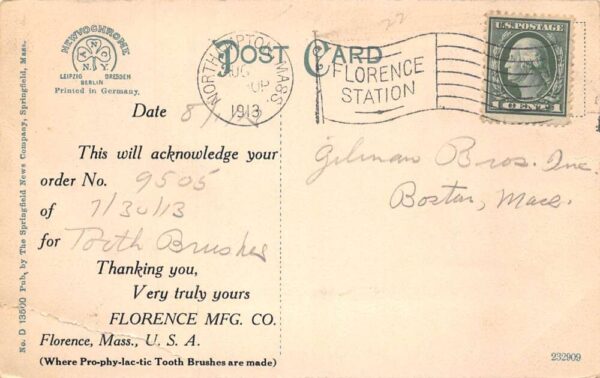 NEWVOCHROME
A N C
N.Y.
LEIPZIG DRESDEN
BERLIN
Printed in Germany.
POST CARD
NORTHAMPTON MASS.
AUG
1913
FLORENCE
STATION
U.S. POSTAGE
1 CENT 1
Date 8/
This will acknowledge your
order No. 9505
of 7/30/13
for Tooth Brushes
Thanking you,
Very truly yours
FLORENCE MFG. CO.
Florence, Mass., U. S. A.
(Where Pro-phy-lac-tic Tooth Brushes are made)
Gilman Bros. Inc.
Boston, Mass.
No. D 13500 Pub. by The Springfield News Company, Springfield, Mass.
232909